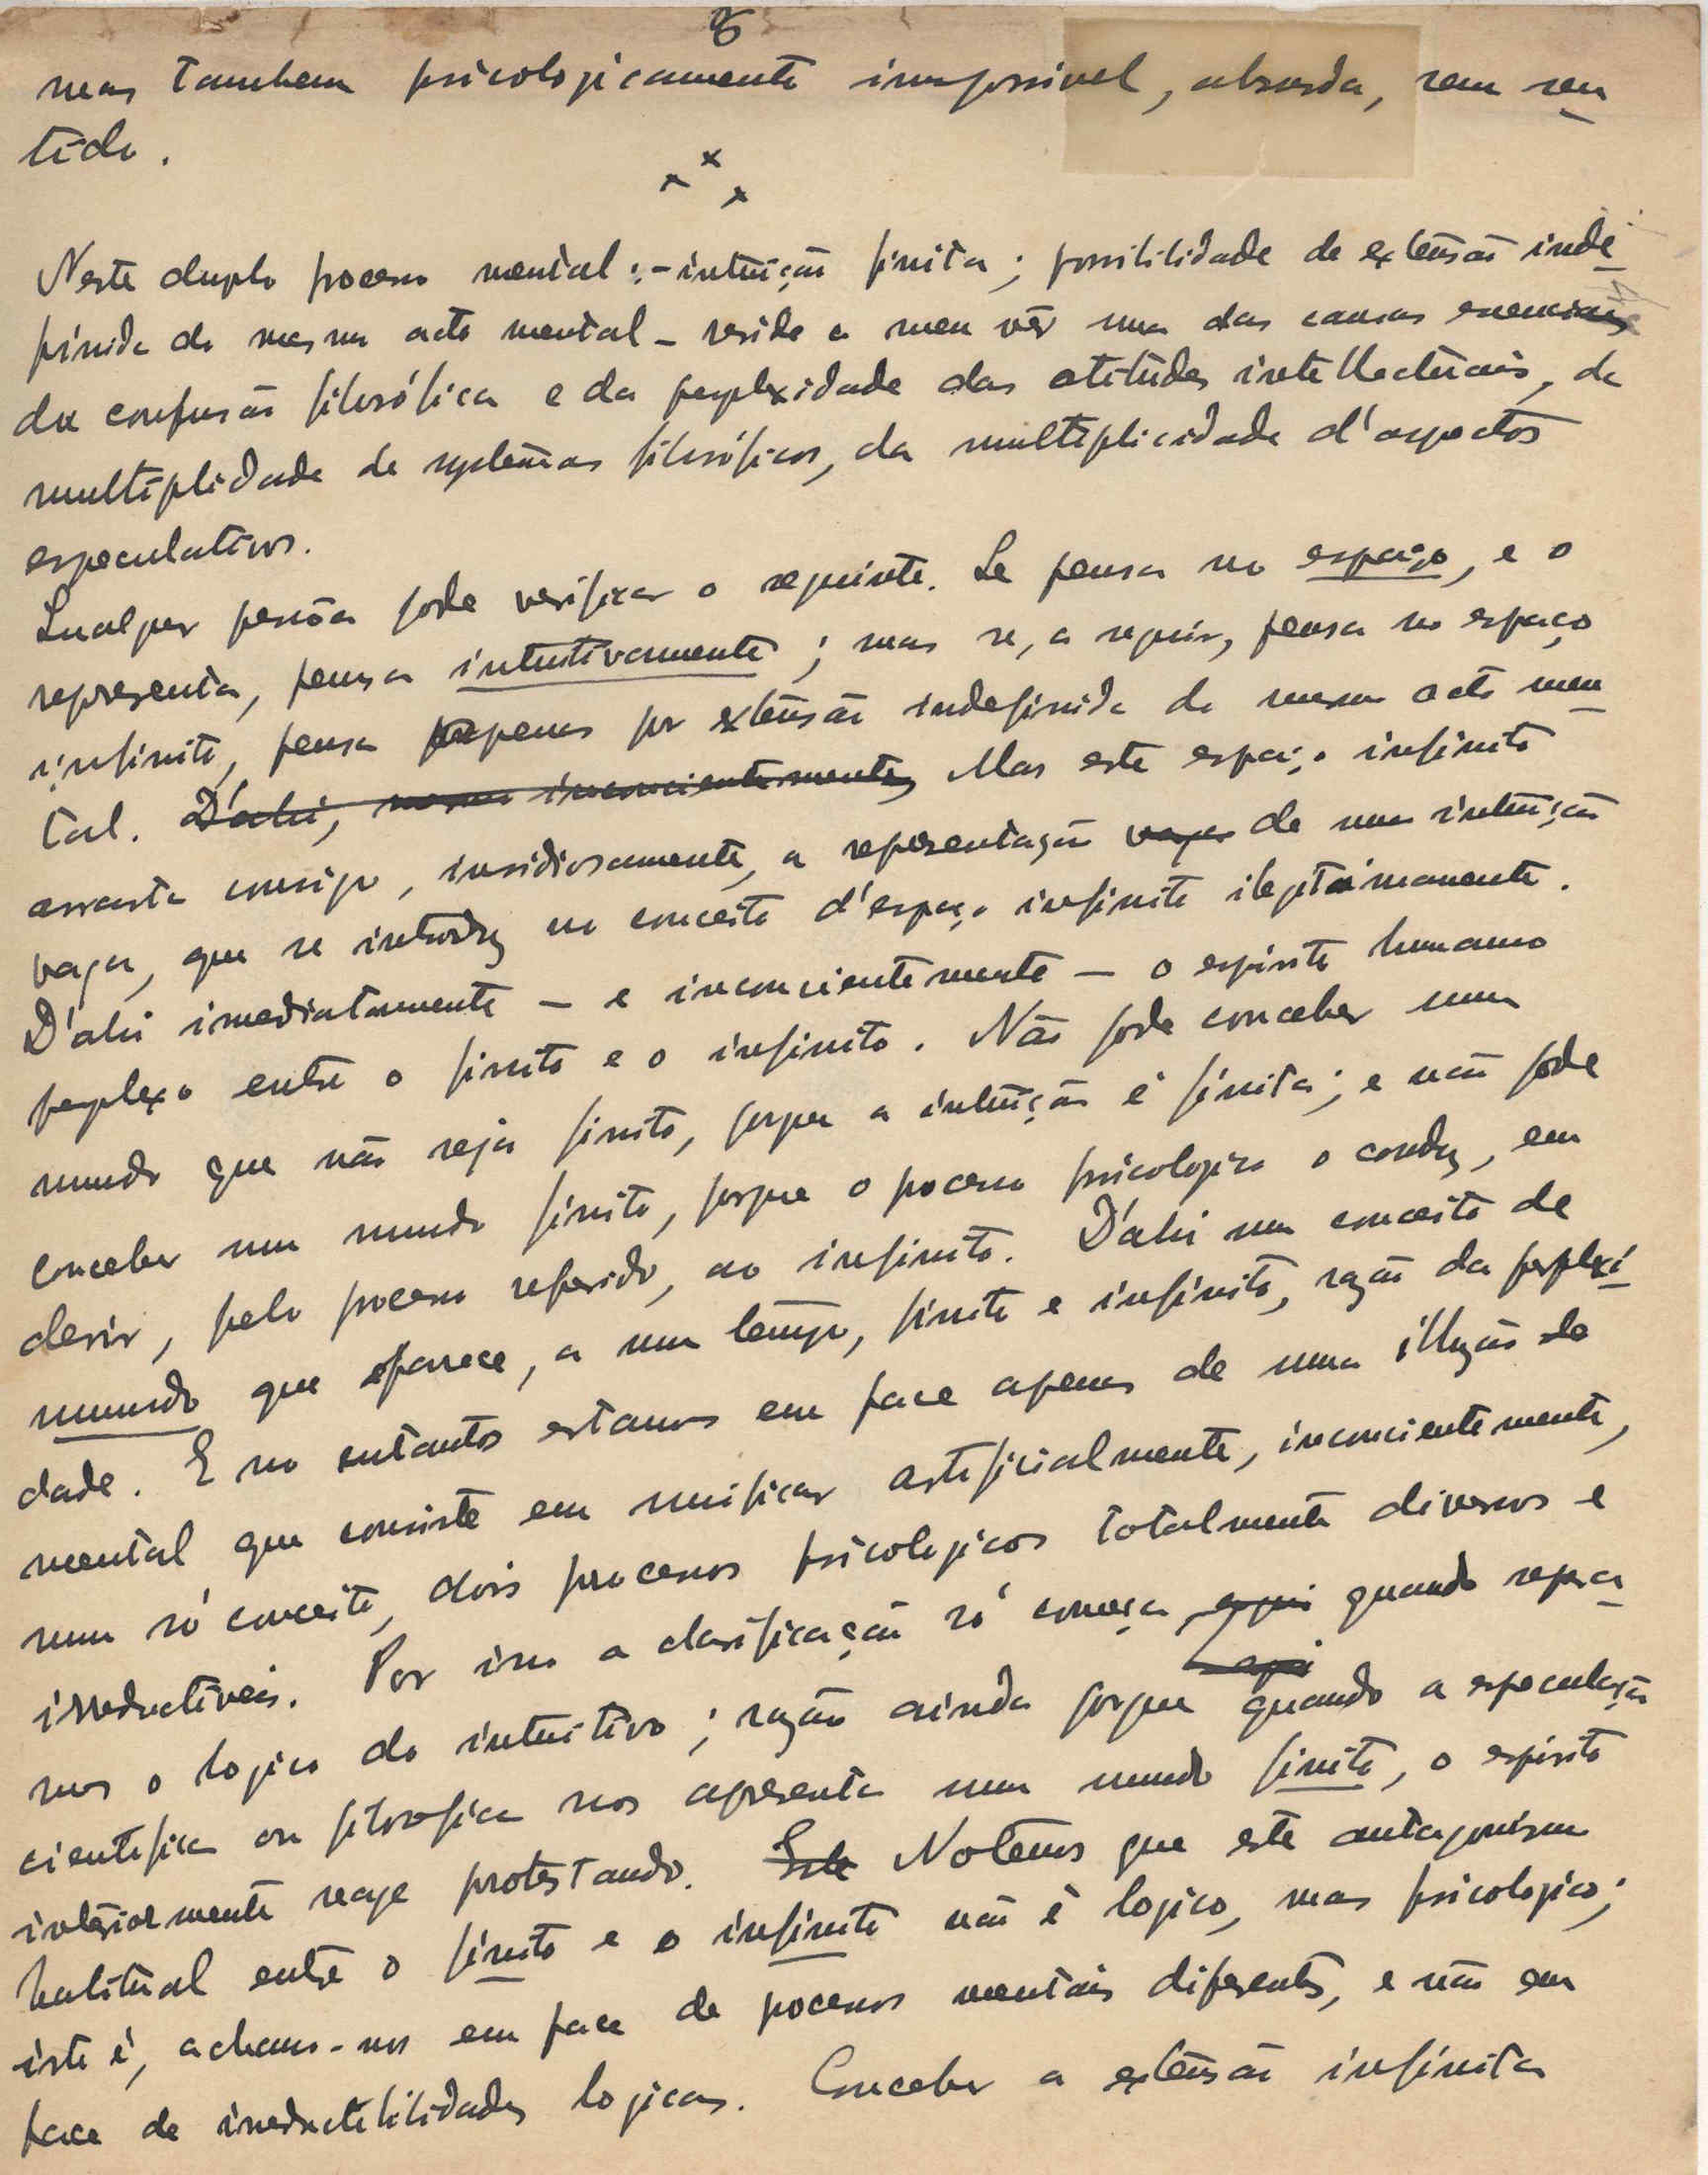 8
mas tambem psicologicamente impossivel, absurda, sem sen
tido.
x x x
Neste duplo processo mental: - intuição finita; possibilidade de extensão inde-
finida do mesmo acto mental - reside a meu vêr uma das causas essenciaes
da confusão filosófica e da perplexidade das atitudes intellectuais, da
multiplidade de systemas filosóficos, da multiplicidade d'aspectos
especulativos.
Qualquer pessôa pode verificar o seguinte. Se pensa no espaço, e o
representa, pensa intuitivamente; mas se, a seguir, pensa no espaço
infinito, pensa apenas por extensão indefinida do mesmo acto men
tal. D'ahi, inconscientemente, Mas este espaço infinito
arrasta consigo, insidiosamente, a representação vaga de uma intuição
vaga, que se introduz no conceito d'espaço infinito ilegitimamente.
D'ahi imediatamente - e inconscientemente - o espirito humano
perplexo entre o finito e o infinito. Não pode conceber um
mundo que não seja finito, porque a intuição é finita; e não pode
conceber um mundo finito, porque o processo psicologico o conduz, em
derir, pelo processo referido, ao infinito. D'ahi um conceito de
mundo que parece, a um tempo, finito e infinito, razão da perplexi-
dade. E no entanto estamos em face apenas de uma illuzão do
mental que consiste em unificar artificialmente, inconscientemente,
num só conceito, dois processos psicologicos totalmente diversos e
irreductiveis. Por isso a clarificação só começa aqui quando separa-
aqui
mos o logico do intuitivo; razão ainda porque quando a especulação
cientifica ou filosofica nos apresenta um mundo finito, o espirito
interiormente reage protestando. Este Notemos que este antagonismo
habitual entre o finito e o infinito não é logico, mas psicologico;
isto é, achamo-nos em face de processos mentais diferentes, e não em
face de irreductibilidades logicas. Conceber a extensão infinita